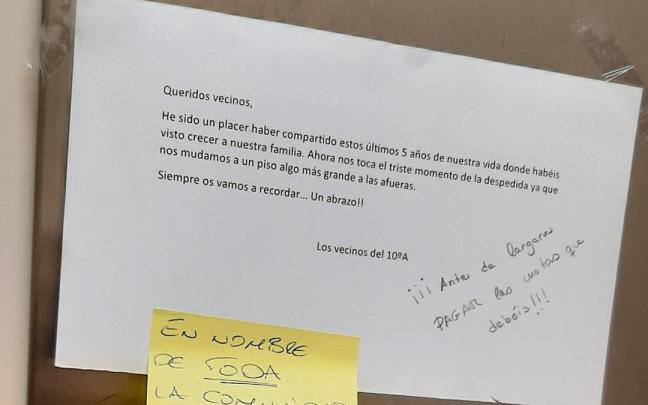 Queridos vecinos,
He sido un placer haber compartido estos últimos 5 años de nuestra vida donde habéis
visto crecer a nuestra familia. Ahora nos toca el triste momento de la despedida ya que
nos mudamos a un piso algo más grande a las afueras.
Siempre os vamos a recordar... Un abrazo!!
Los vecinos del 10ºA
¡¡¡ Antes de largaros
PAGAR las cuotas que
debéis!!!
EN NOMBRE
DE TODA
LA